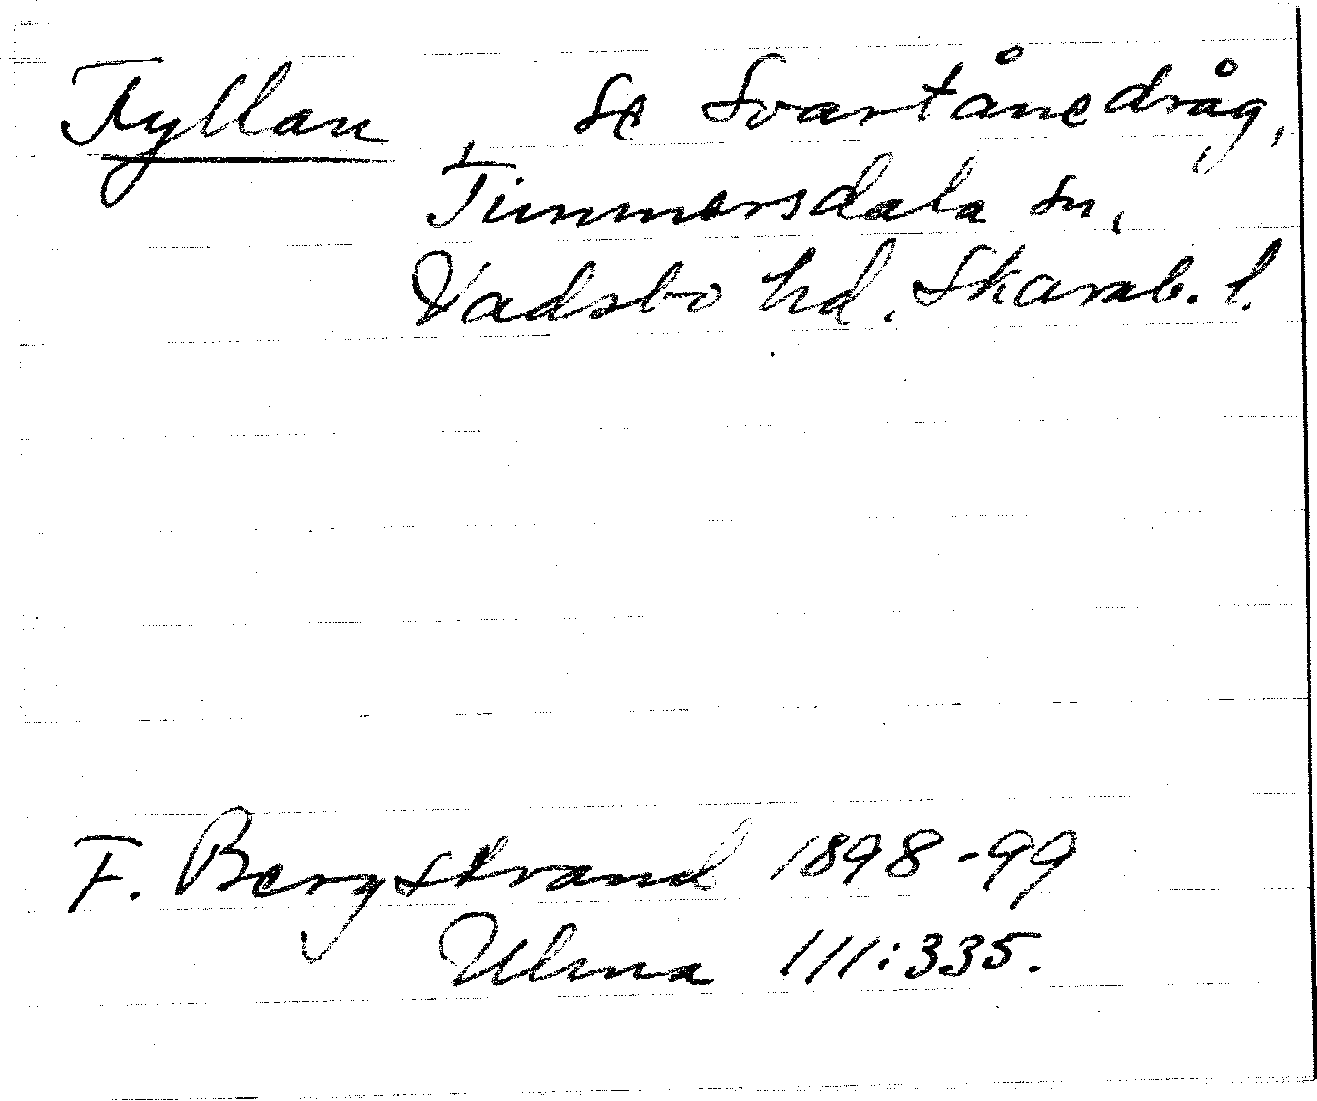 Fyllan, se Svartånedråg,
Timmersdala sn,
Vadsbo hd. Skarab. l.
F. Bergstrand 1898-99
Ulma 111:335.